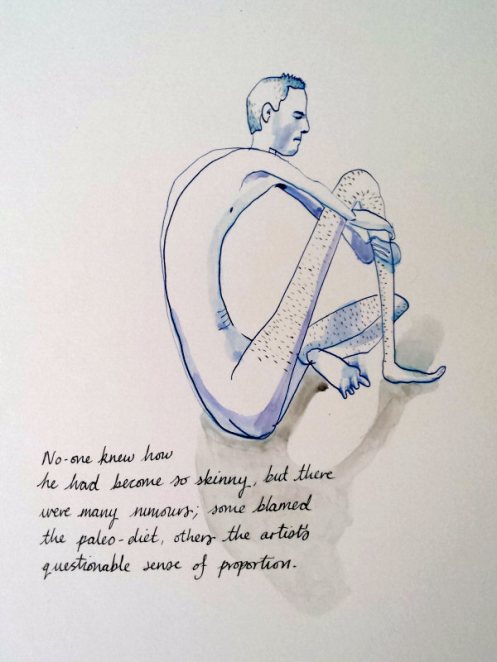 No-one knew how
he had become so skinny, but there
were many rumours; some blamed
the paleo-diet, others the artist's
questionable sense of proportion.